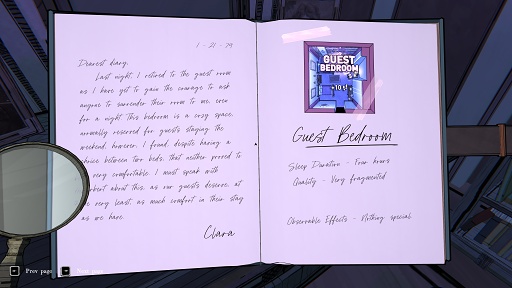 1 - 21 - 79
Dearest diary,
Last night, I retired to the guest room
as I have yet to gain the courage to ask
anyone to surrender their room to me even
for a night. This bedroom is a cozy space,
normally reserved for guests staying the
weekend, however, I found, despite having a
choice between two beds, that neither proved to
very comfortable. I must speak with
about this, as our guests deserve, at
very least, as much comfort in their stay
as we have.
Clara
GUEST
BEDROOM
Guest Bedroom
Sleep Duration - Four hours
Quality - Very fragmented
Observable Effects - Nothing special
Prev page